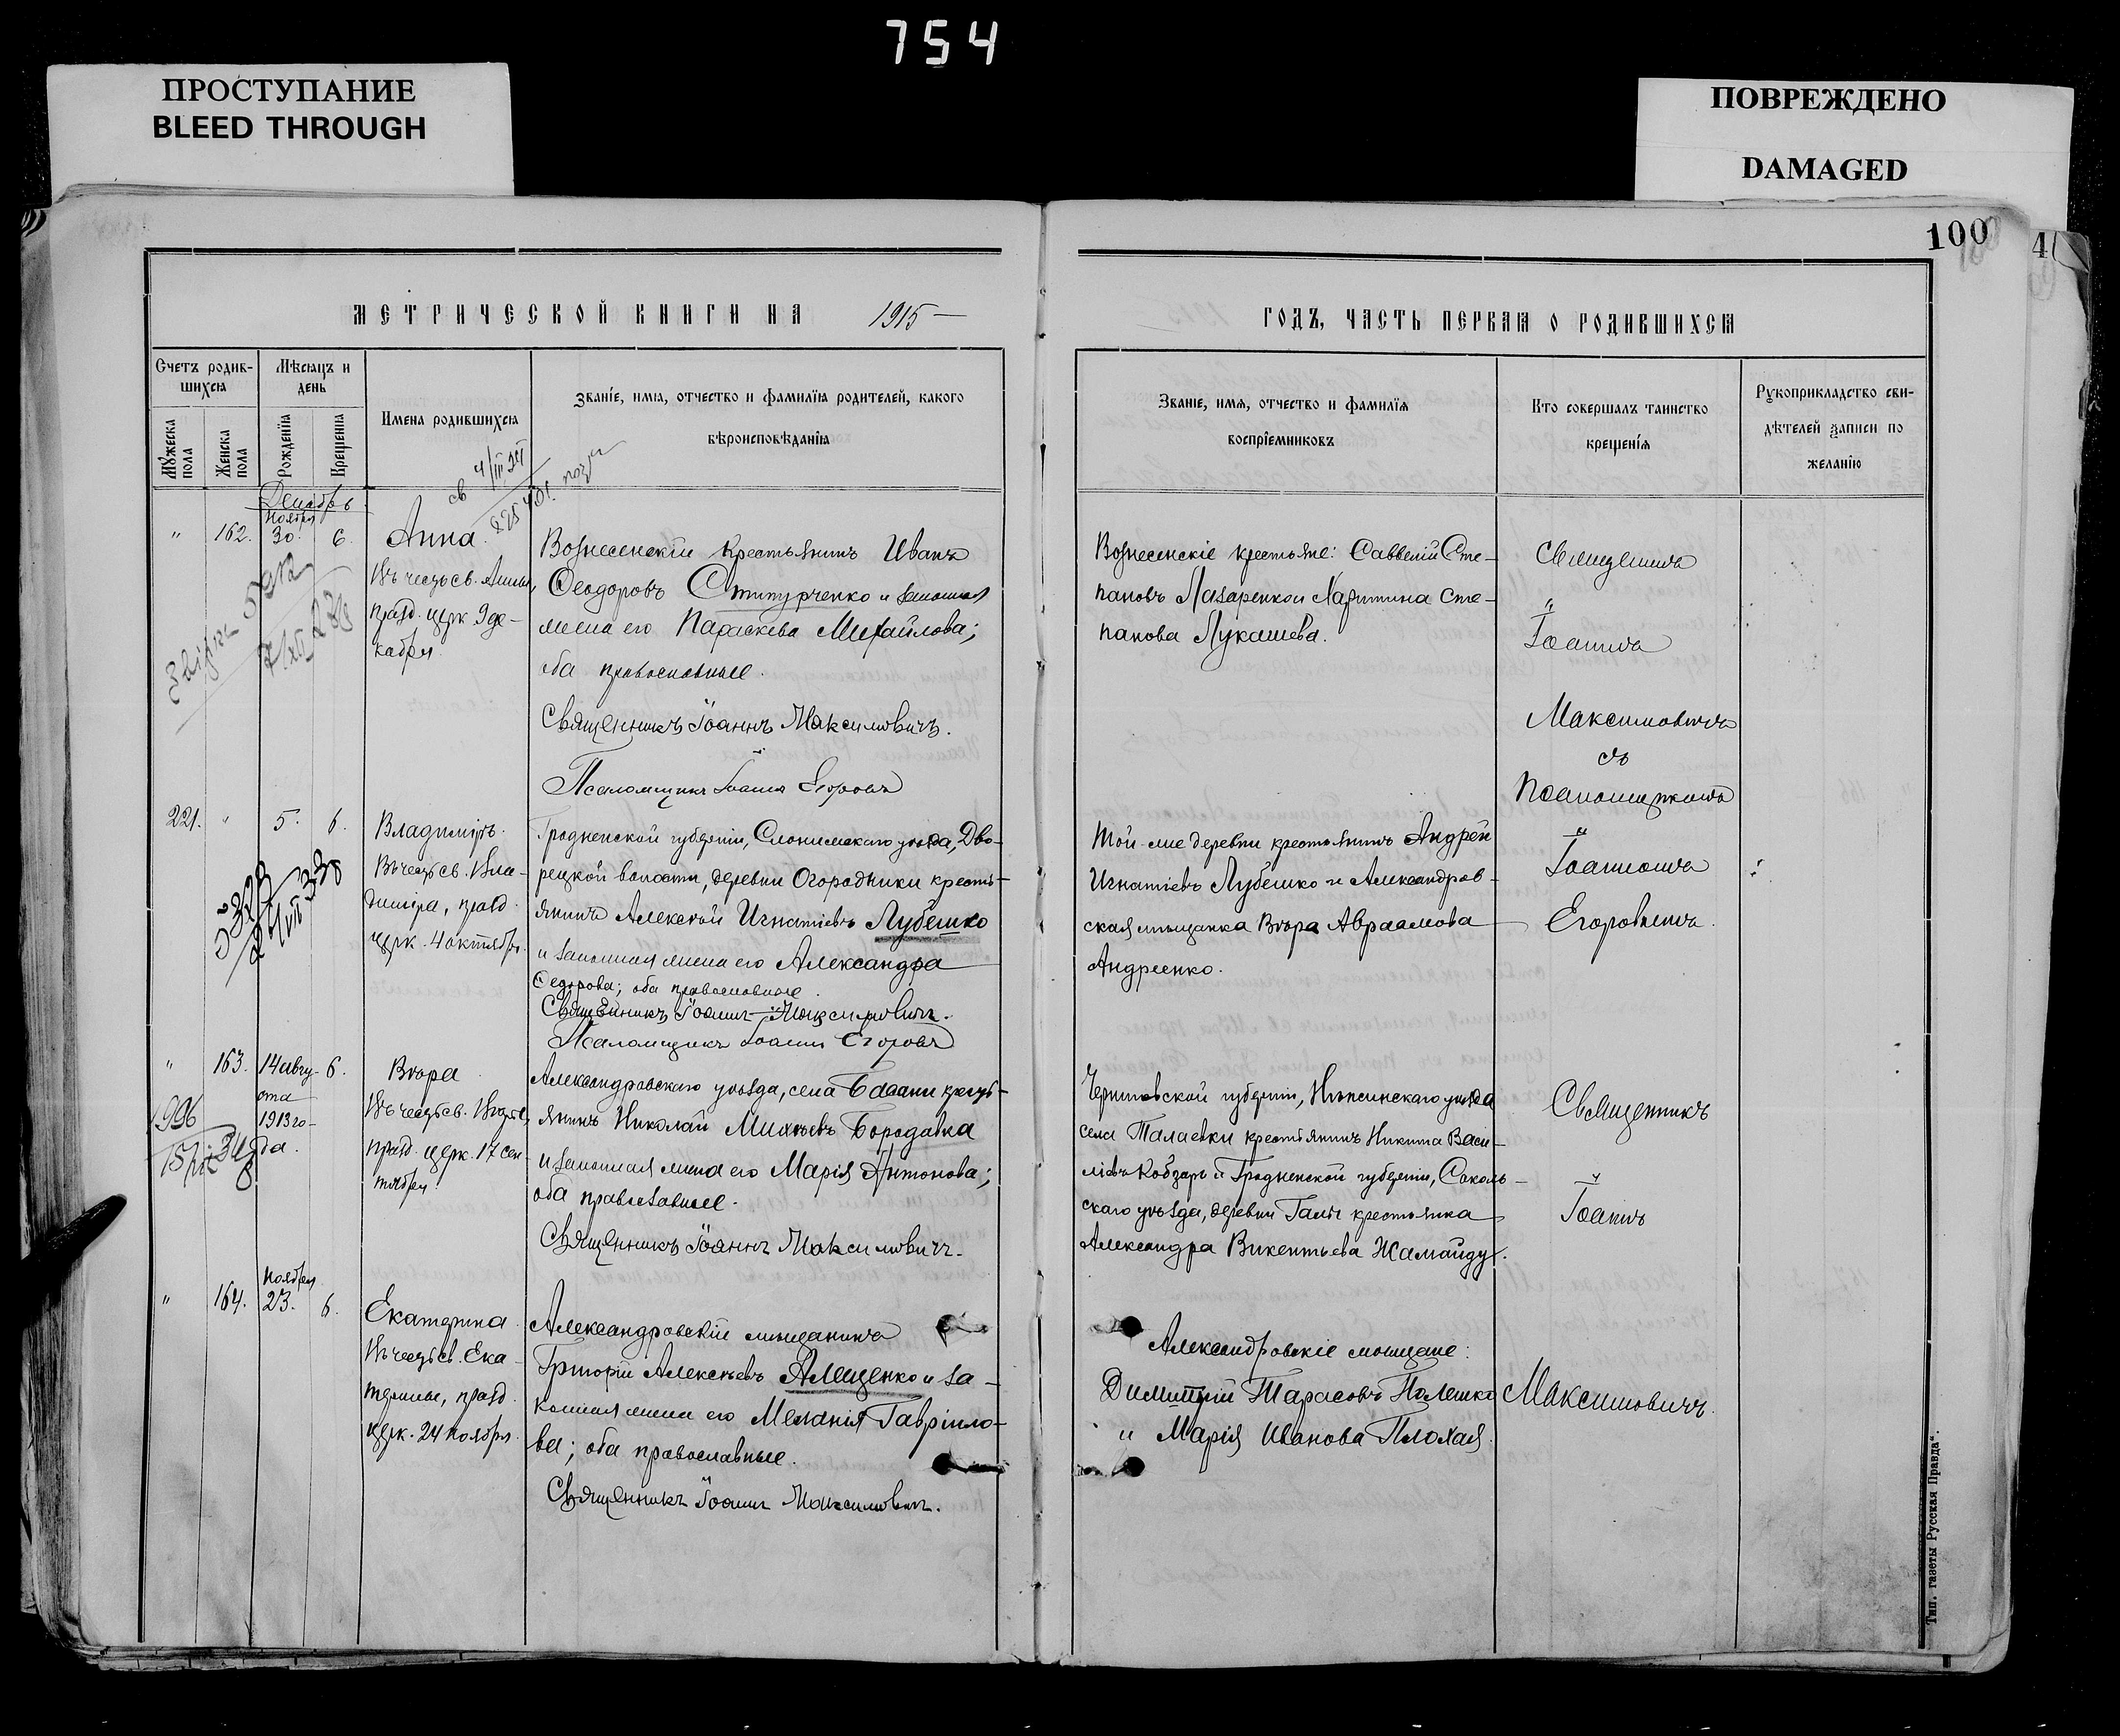 754
ПРОСТУПАНИЕ
BLEED THROUGH
ПОВРЕЖДЕНО
DAMAGED
100
4
МЕТРИЧЕСКОЙ КНИГИ НА 1915
ГОДЪ, ЧАСТЬ ПЕРВАЯ О РОДИВШИХСЯ
Счетъ родив-
шихся
Мѣсяцъ и
день
Имена родившихся
Званіе, имя, отчество и фамилія родителей, какого
вѣроисповѣданія
Мужеска
пола
Женска
пола
Рожденія
Крещенія
Званіе, имя, отчество и фамилія
воспріемниковъ
Кто совершалъ таинство
крещенія
Рукоприкладство сви-
дѣтелей записи по
желанію
Декабрь
Ноября
" 162. 30. 6.
Анна.
Въ честь св. Анны,
празд. церк. 9 де-
кабря.
Вознесенскій крестьянинъ Иванъ
Ѳеодоровъ Стипурченко и законная
жена его Параскева Михайлова;
оба православные.
Священникъ Іоаннъ Максимовичъ.
Псаломщикъ Іоаннъ Егоровъ
Вознесенскіе крестьяне: Савветій Сте-
пановъ Лазаренко и Харитина Сте-
панова Лукашева.
Священникъ
Іоаннъ
Максимовичъ
съ
Псаломщикомъ
Іоанномъ
Егоровымъ.
221. " 5. 6.
Владиміръ.
Въ честь св. Вла-
диміра, празд.
церк. 4 октября.
Гродненской губерніи, Слонимскаго уѣзда, Дво-
рецкой волости, деревни Огородники кресть-
янинъ Алексѣй Игнатіевъ Лубешко
и законная жена его Александра
Ѳедорова; оба православные.
Священникъ Іоаннъ Максимовичъ.
Псаломщикъ Іоаннъ Егоровъ
Той-же деревни крестьянинъ Андрей
Игнатіевъ Лубешко и Александров-
ская мѣщанка Вѣра Авраамова
Андреенко.
" 163. 14 авгу- 6.
ста
1913 го-
да.
1996
Вѣра
Въ честь св. Вѣры,
празд. церк. 17 сен-
тября.
Александровскаго уѣзда, села Басани кресть-
янинъ Николай Михѣевъ Бородавка
и законная жена его Марія Антонова;
оба православные.
Священникъ Іоаннъ Максимовичъ.
Черниговской губерніи, Нѣжинскаго уѣзда
села Талаевки крестьянинъ Никита Васи-
ліевъ Кобзарь и Гродненской губерніи, Соколь-
скаго уѣзда, деревни Гали крестьянка
Александра Викентьева Жамойду.
Священникъ
Іоаннъ
Ноября
" 164. 23. 6.
Екатерина.
Въ честь св. Ека-
терины, празд.
церк. 24 ноября.
Александровскій мѣщанинъ
Григорій Алексѣевъ Алещенко и за-
конная жена его Меланія Гавріило-
ва; оба православные.
Священникъ Іоаннъ Максимовичъ.
Александровскіе мѣщане:
Димитрій Тарасовъ Полешко
и Марія Иванова Плохая.
Максимовичъ.
Тип. газеты „Русская Правда“.